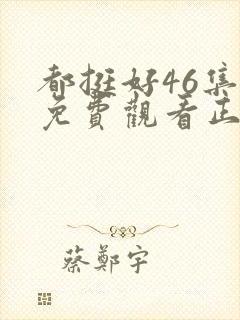 都挺好46集
免費觀看正
蔡鄭宇